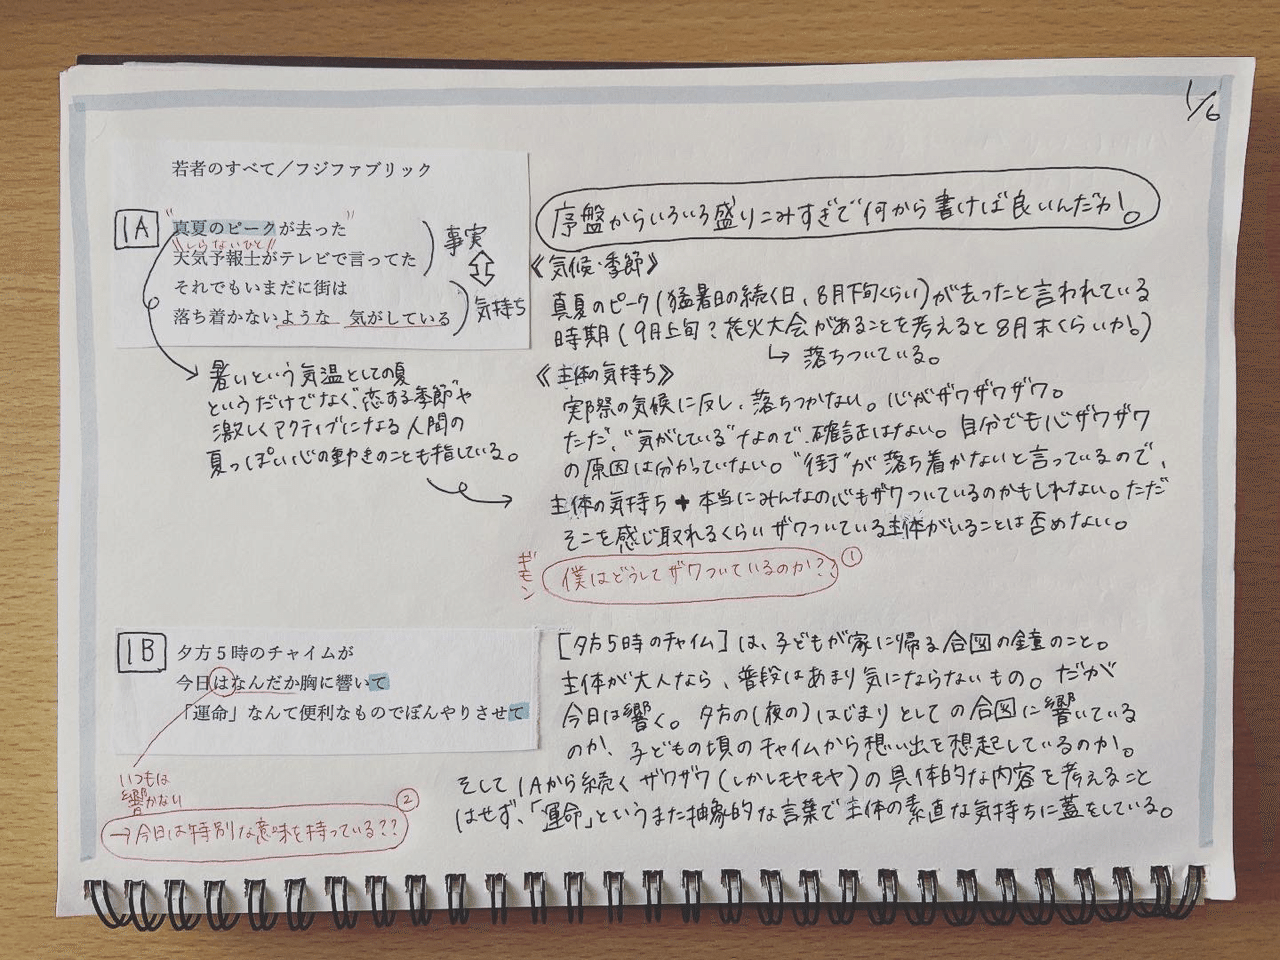 1/6
若者のすべて／フジファブリック
1A
"真夏のピークが去った"
"しらないひと"
天気予報士がテレビで言ってた
それでもいまだに街は
落ち着かないような 気がしている
事実
気持ち
暑いという気温としての夏
というだけでなく、"恋する季節"や
激しくアクティブになる人間の
夏っぽい心の動きのことも指している。
序盤からいろいろ盛りこみすぎで何から書けば良いんだか!。
《気候・季節》
真夏のピーク(猛暑日の続く日、8月下旬くらい)が去ったと言われている
時期(9月上旬?花火大会があることを考えると8月末くらいか!。)
↳ 落ちついている。
《主体の気持ち》
実際の気候に反し、落ちつかない。心がザワザワザワ。
ただ、"気がしている"なので、確証はない。自分でも心ザワザワ
の原因は分かっていない。"街"が落ち着かないと言っているので、
主体の気持ち + 本当にみんなの心もザワついているのかもしれない。ただ
そこを感じ取れるくらいザワついている主体がいることは否めない。
ギモン
僕はどうしてザワついているのか?
①
1B
夕方5時のチャイムが
今日はなんだか胸に響いて
「運命」なんて便利なものでぼんやりさせて
いつもは
響かない
②
→今日は特別な意味を持っている??
[夕方5時のチャイム]は、子どもが家に帰る合図の鐘のこと。
主体が大人なら、普段はあまり気にならないもの。だが
今日は響く。夕方の(夜の)はじまりとしての合図に響いている
のか、子どもの頃のチャイムから想い出を想起しているのか。
そして1Aから続くザワザワ(しかしモヤモヤ)の具体的な内容を考えること
はせず、「運命」というまた抽象的な言葉で主体の素直な気持ちに蓋をしている。